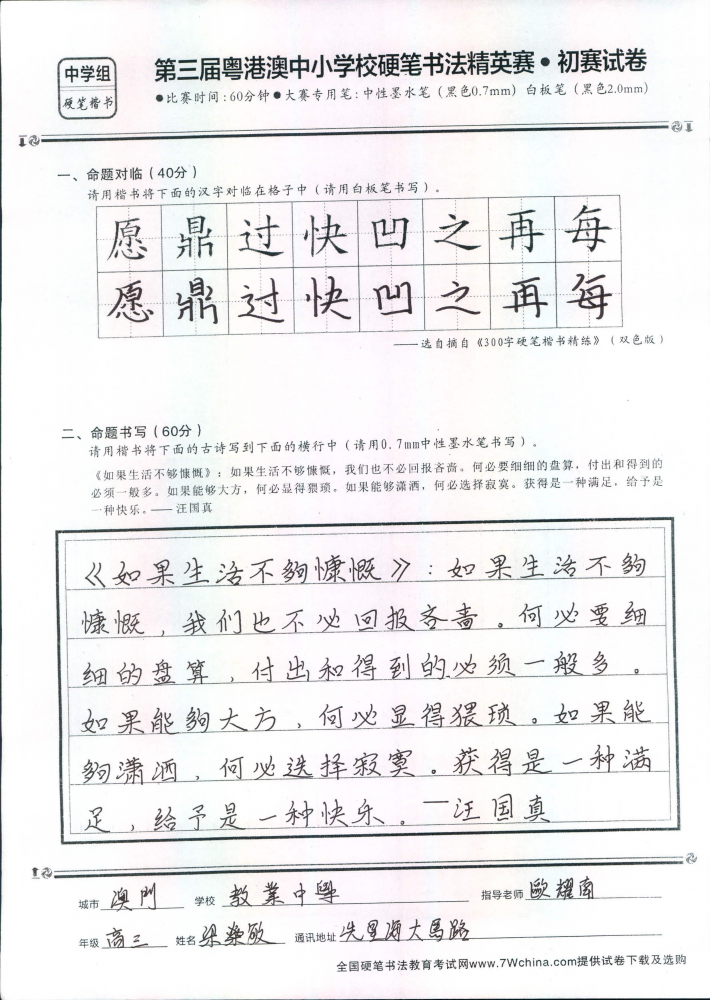 中学组
硬笔楷书
第三届粤港澳中小学校硬笔书法精英赛•初赛试卷
●比赛时间:60分钟●大赛专用笔:中性墨水笔（黑色0.7mm）白板笔（黑色2.0mm）
一、命题对临（40分）
请用楷书将下面的汉字对临在格子中（请用白板笔书写）。
愿鼎过快凹之再每
愿鼎过快凹之再每
——选自摘自《300字硬笔楷书精练》（双色版）
二、命题书写（60分）
请用楷书将下面的古诗写到下面的横行中（请用0.7mm中性墨水笔书写）。
《如果生活不够慷慨》：如果生活不够慷慨，我们也不必回报吝啬。何必要细细的盘算，付出和得到的
必须一般多。如果能够大方，何必显得猥琐。如果能够潇洒，何必选择寂寞。获得是一种满足，给予是
一种快乐。——汪国真
《如果生活不夠慷慨》：如果生活不夠
慷慨，我们也不必回报吝啬。何必要细
细的盘算，付出和得到的必须一般多。
如果能夠大方，何必显得猥琐。如果能
夠潇洒，何必选择寂寞。获得是一种满
足，给予是一种快乐。—汪国真
城市 澳門 学校 教業中學 指导老师 歐耀南
年级 高三 姓名 梁榮敏 通讯地址 大馬路
全国硬笔书法教育考试网www.7Wchina.com提供试卷下载及选购